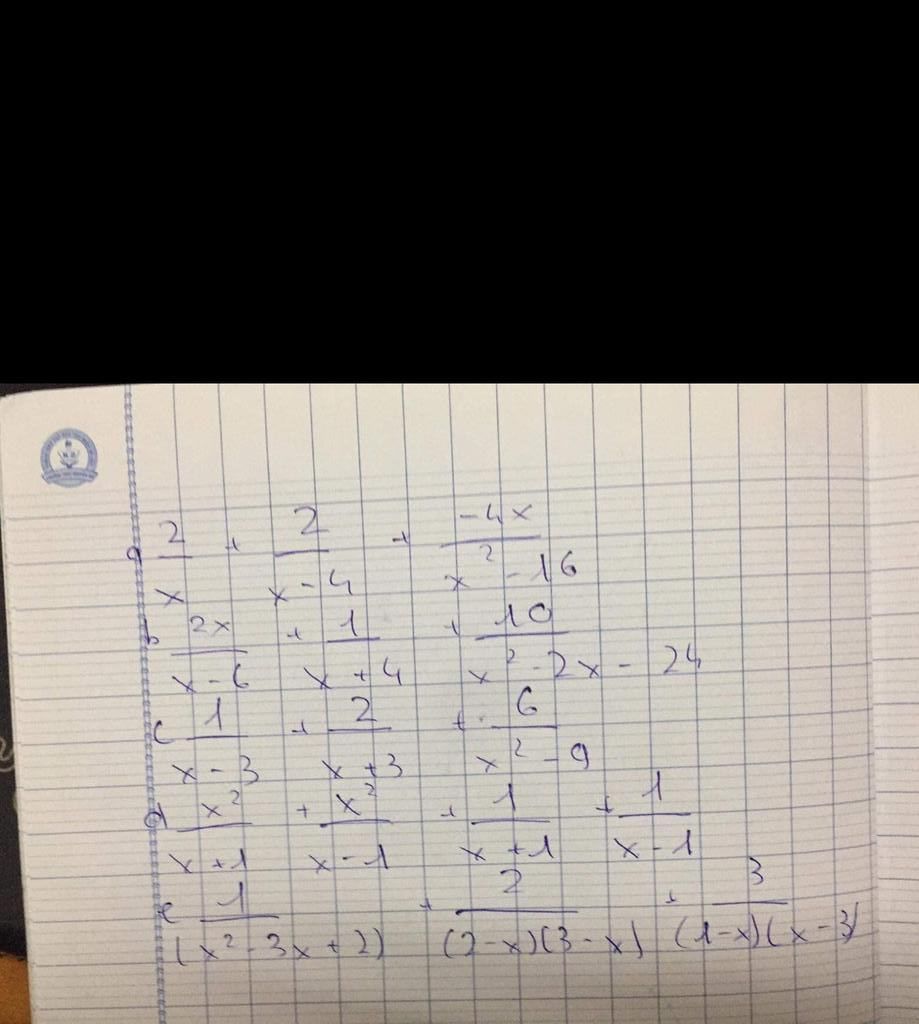 a 2/x + 2/(x-4) + (-4x)/(x²-16)
b 2x/(x-6) + 1/(x+4) + 10/(x²-2x-24)
c 1/(x-3) + 2/(x+3) + 6/(x²-9)
d x²/(x+1) + x²/(x-1) + 1/(x+1) + 1/(x-1)
e 1/(x²-3x+2) + 2/(2-x)(3-x) + 3/(1-x)(x-3)